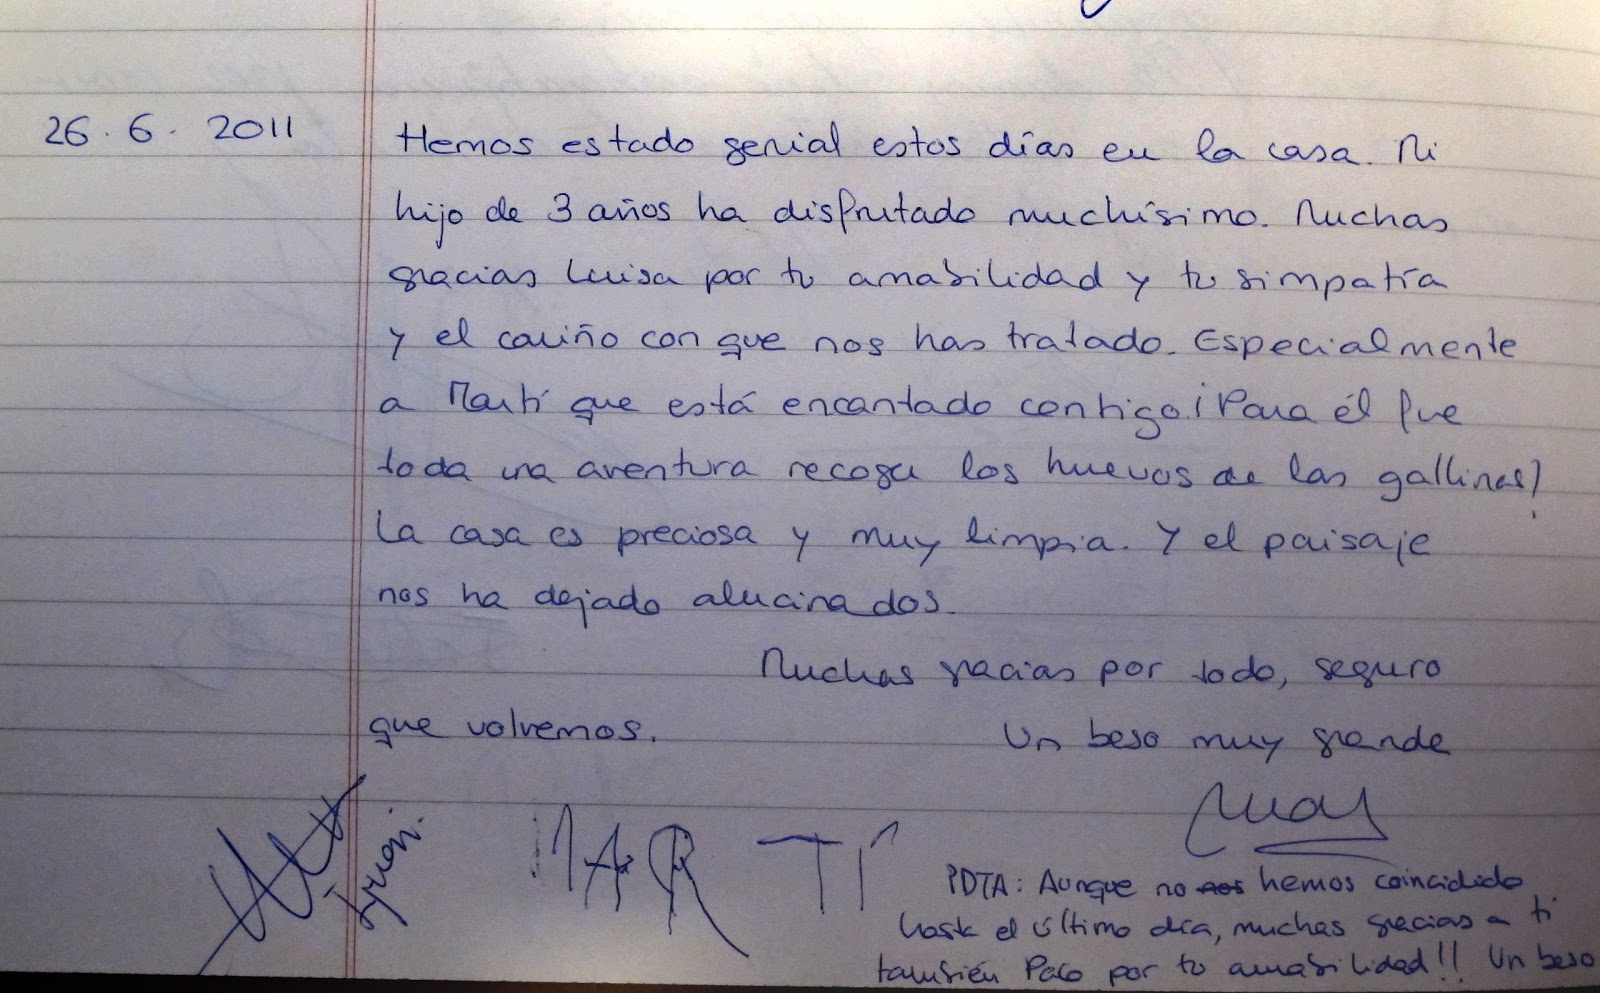 26. 6. 2011
Hemos estado genial estos días en la casa. Mi
hijo de 3 años ha disfrutado muchísimo. Muchas
gracias Luisa por tu amabilidad y tu simpatía
y el cariño con que nos has tratado. Especialmente
a Martí que está encantado contigo. ¡Para él fue
toda una aventura recoger los huevos de las gallinas!
La casa es preciosa y muy limpia. Y el paisaje
nos ha dejado alucinados.
Muchas gracias por todo, seguro
que volvemos.
Un beso muy grande
MAR TÍ
PDTA: Aunque no nos hemos coincidido
hasta el último día, muchas gracias a ti
también Paco por tu amabilidad!! Un beso